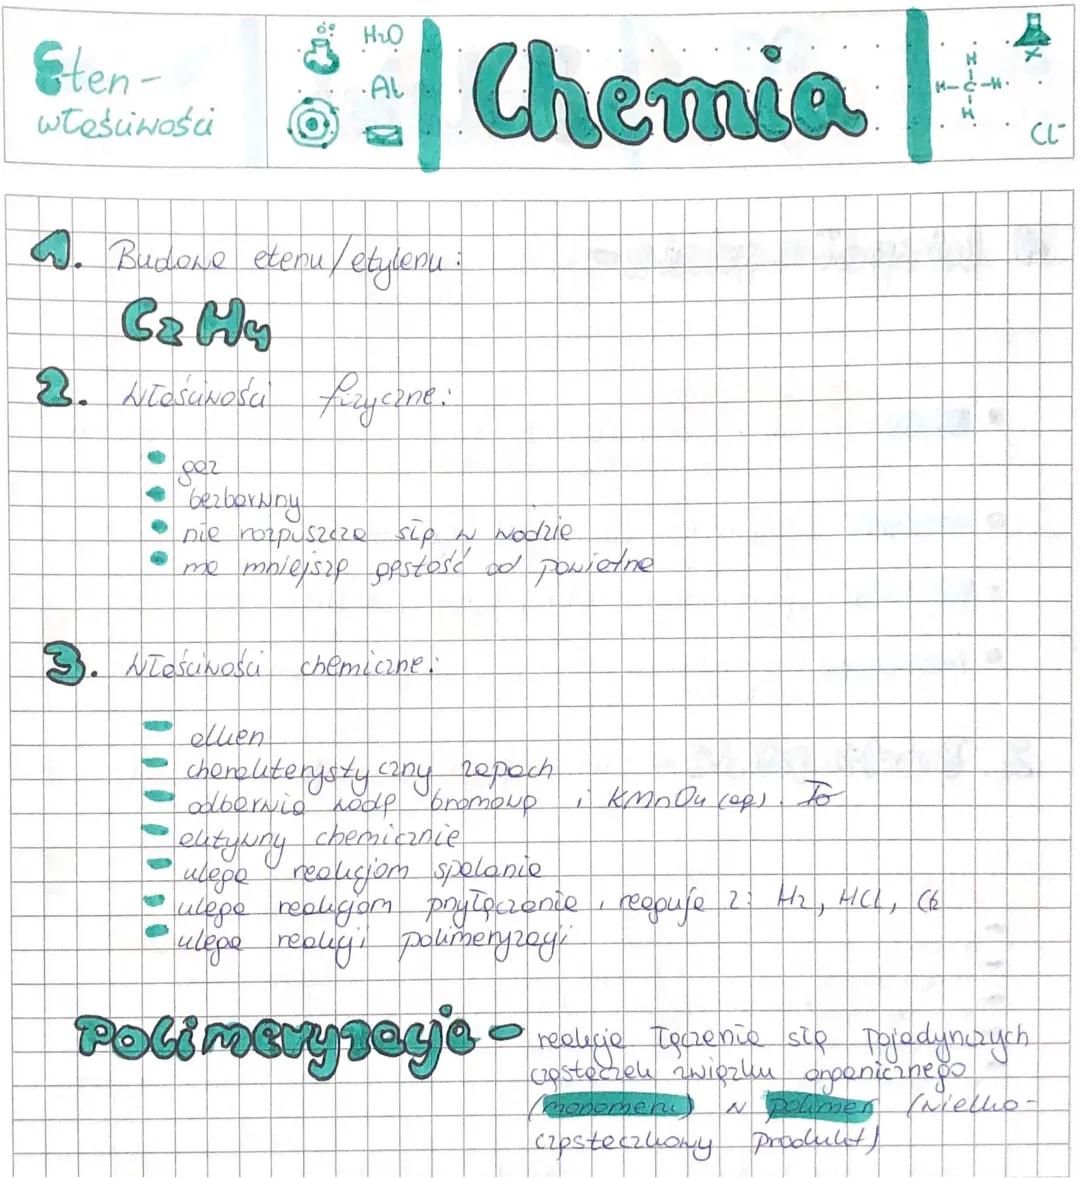 Eten -
właściwości
H₂O
Al
Chemia
H
H-C-H
H
Cl⁻
1. Budowa etenu/etylenu:
C₂H₄
2. Właściwości fizyczne:
gaz
bezbarwny
nie rozpuszcza się w wodzie
ma mniejszą gęstość od powietrza
3. Właściwości chemiczne:
alken
charakterystyczny zapach
odbarwia wodę bromową i KMnO₄ (aq).
aktywny chemicznie
ulega reakcjom spalania
ulega reakcjom przyłączenia, reaguje z: H₂, HCl,
ulega reakcji polimeryzacji
Polimeryzacja - reakcja łączenia się pojedynczych
cząsteczek związku organicznego
(monomeru) w polimer (wielko-
cząsteczkowy produkt)